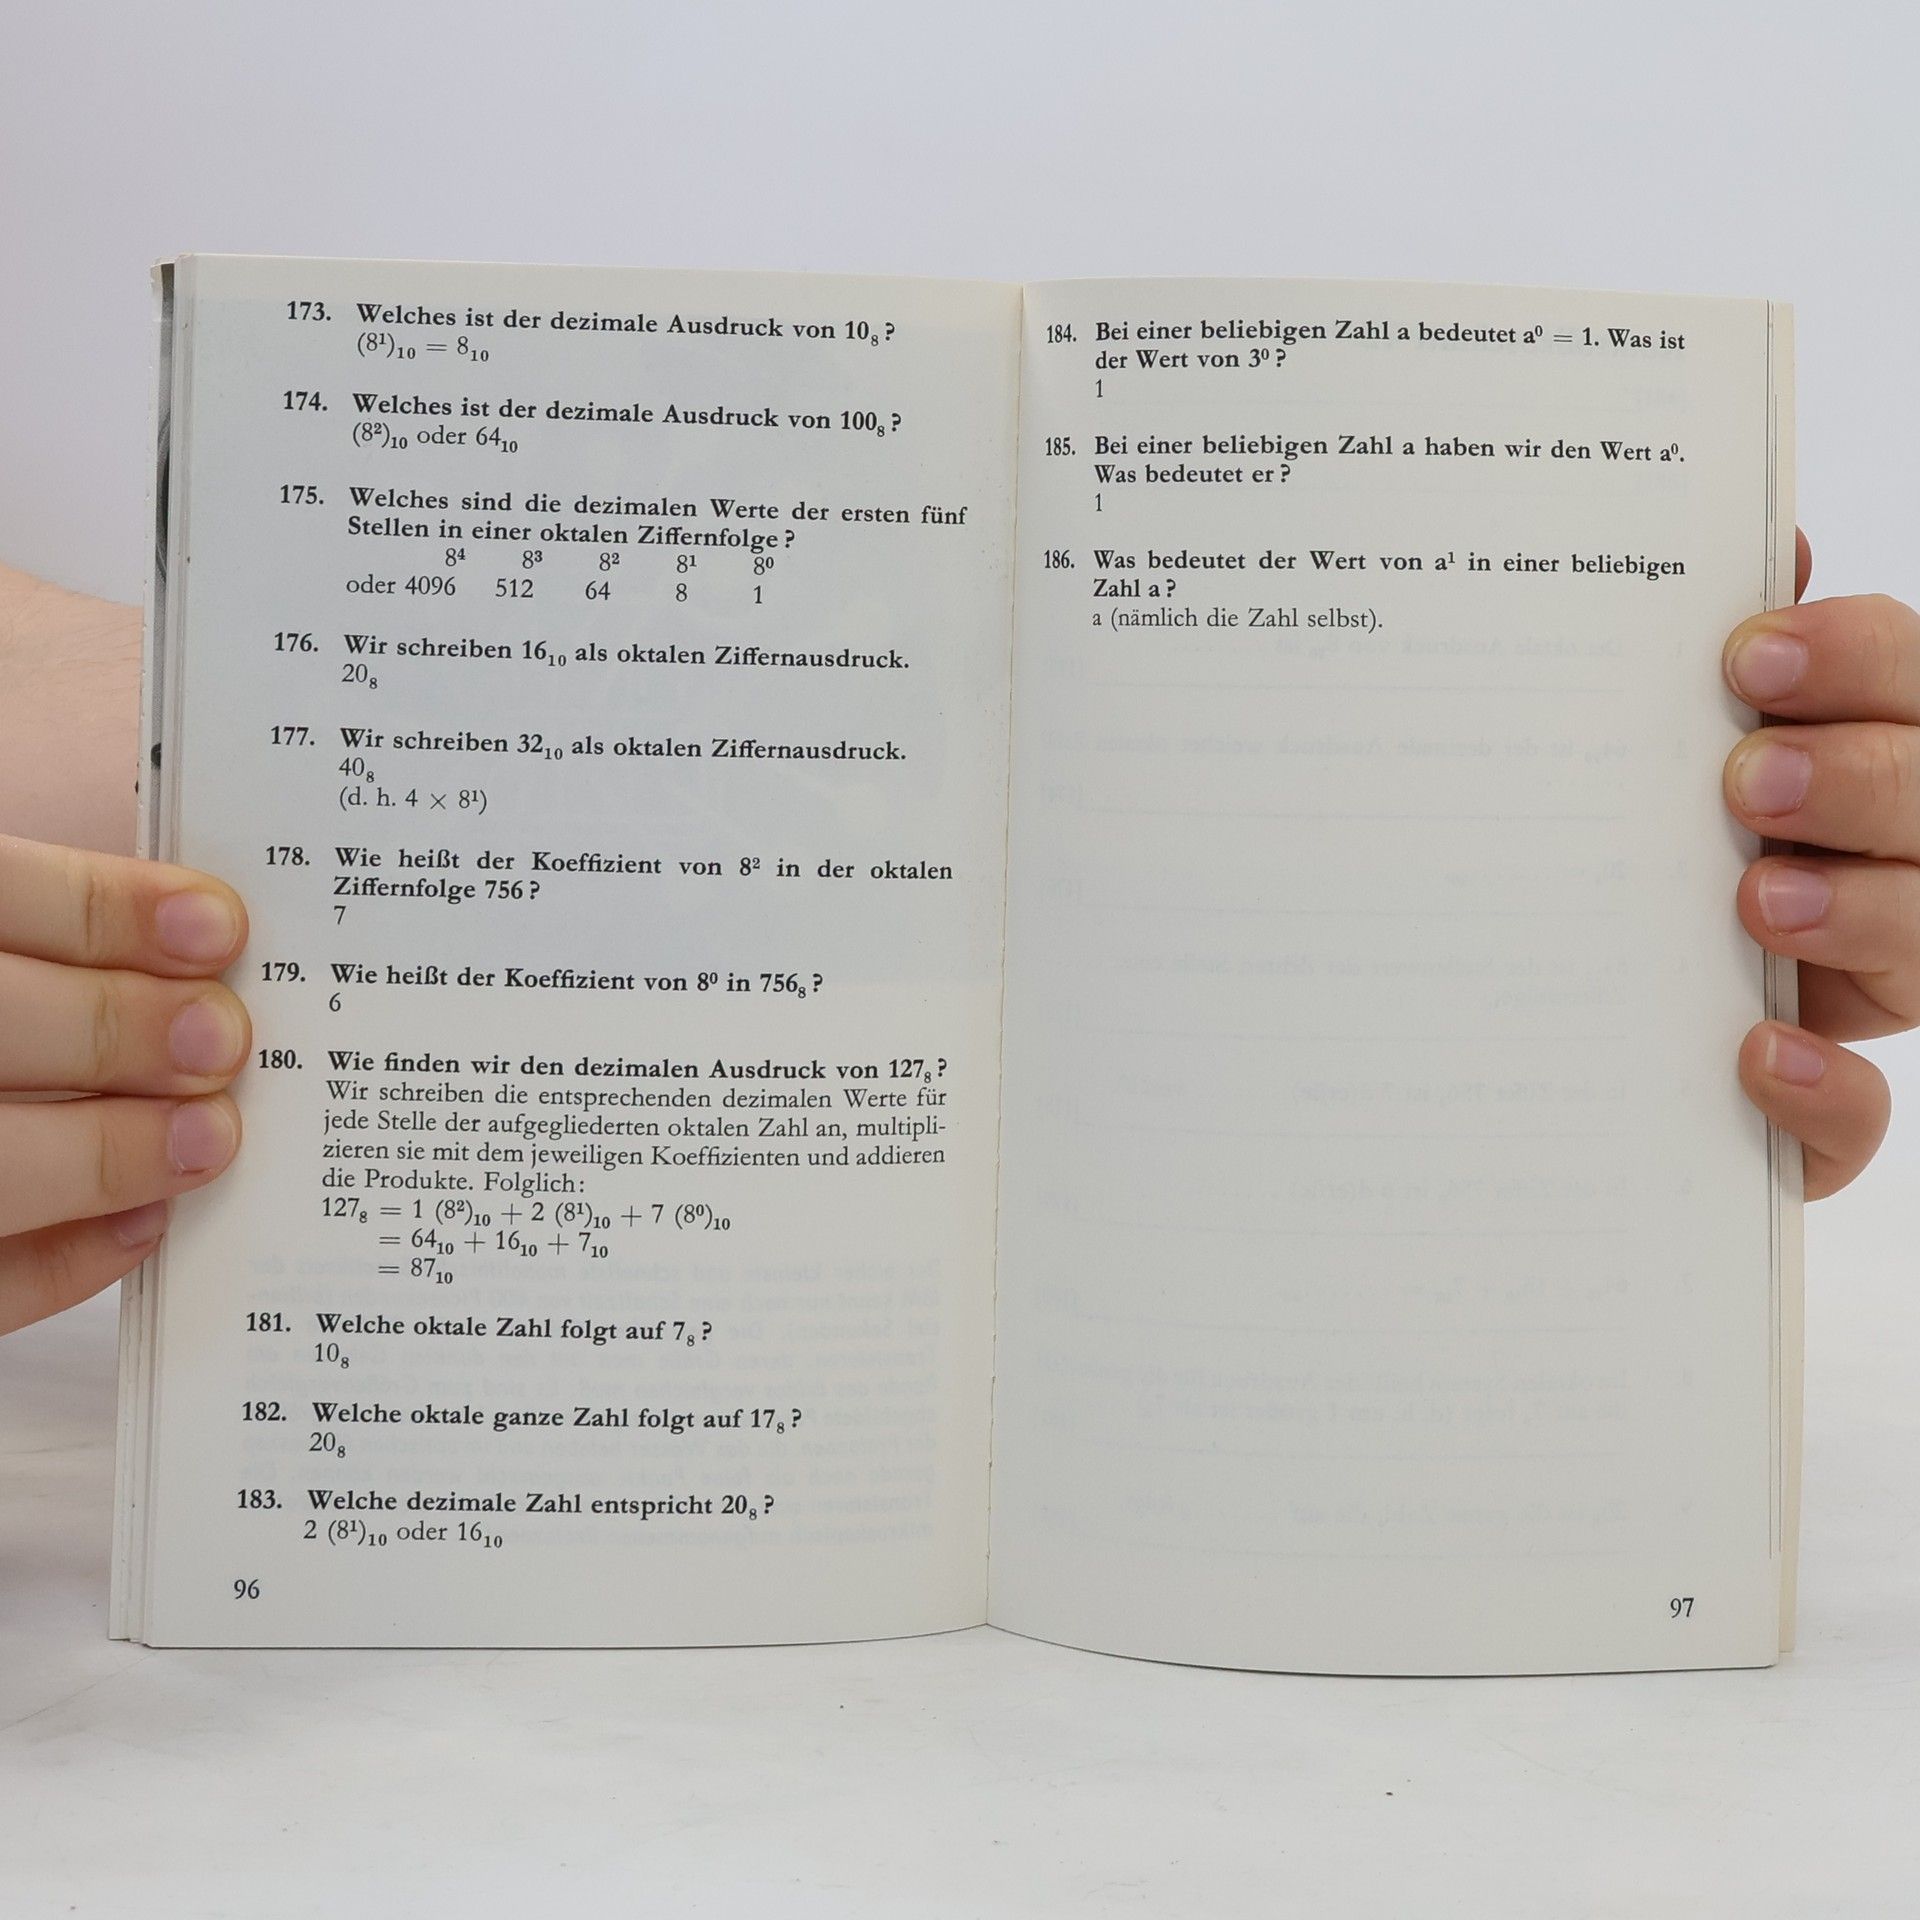 173. Welches ist der dezimale Ausdruck von 10₈?
(8¹)₁₀ = 8₁₀
174. Welches ist der dezimale Ausdruck von 100₈?
(8²)₁₀ oder 64₁₀
175. Welches sind die dezimalen Werte der ersten fünf
Stellen in einer oktalen Ziffernfolge?
8⁴ 8³ 8² 8¹ 8⁰
oder 4096 512 64 8 1
176. Wir schreiben 16₁₀ als oktalen Ziffernausdruck.
20₈
177. Wir schreiben 32₁₀ als oktalen Ziffernausdruck.
40₈
(d. h. 4 × 8¹)
178. Wie heißt der Koeffizient von 8² in der oktalen
Ziffernfolge 756?
7
179. Wie heißt der Koeffizient von 8⁰ in 756₈?
6
180. Wie finden wir den dezimalen Ausdruck von 127₈?
Wir schreiben die entsprechenden dezimalen Werte für
jede Stelle der aufgegliederten oktalen Zahl an, multipli-
zieren sie mit dem jeweiligen Koeffizienten und addieren
die Produkte. Folglich:
127₈ = 1 (8²)₁₀ + 2 (8¹)₁₀ + 7 (8⁰)₁₀
= 64₁₀ + 16₁₀ + 7₁₀
= 87₁₀
181. Welche oktale Zahl folgt auf 7₈?
10₈
182. Welche oktale ganze Zahl folgt auf 17₈?
20₈
183. Welche dezimale Zahl entspricht 20₈?
2 (8¹)₁₀ oder 16₁₀
96
184. Bei einer beliebigen Zahl a bedeutet a⁰ = 1. Was ist
der Wert von 3⁰?
1
185. Bei einer beliebigen Zahl a haben wir den Wert a⁰.
Was bedeutet er?
1
186. Was bedeutet der Wert von a¹ in einer beliebigen
Zahl a?
a (nämlich die Zahl selbst).
97